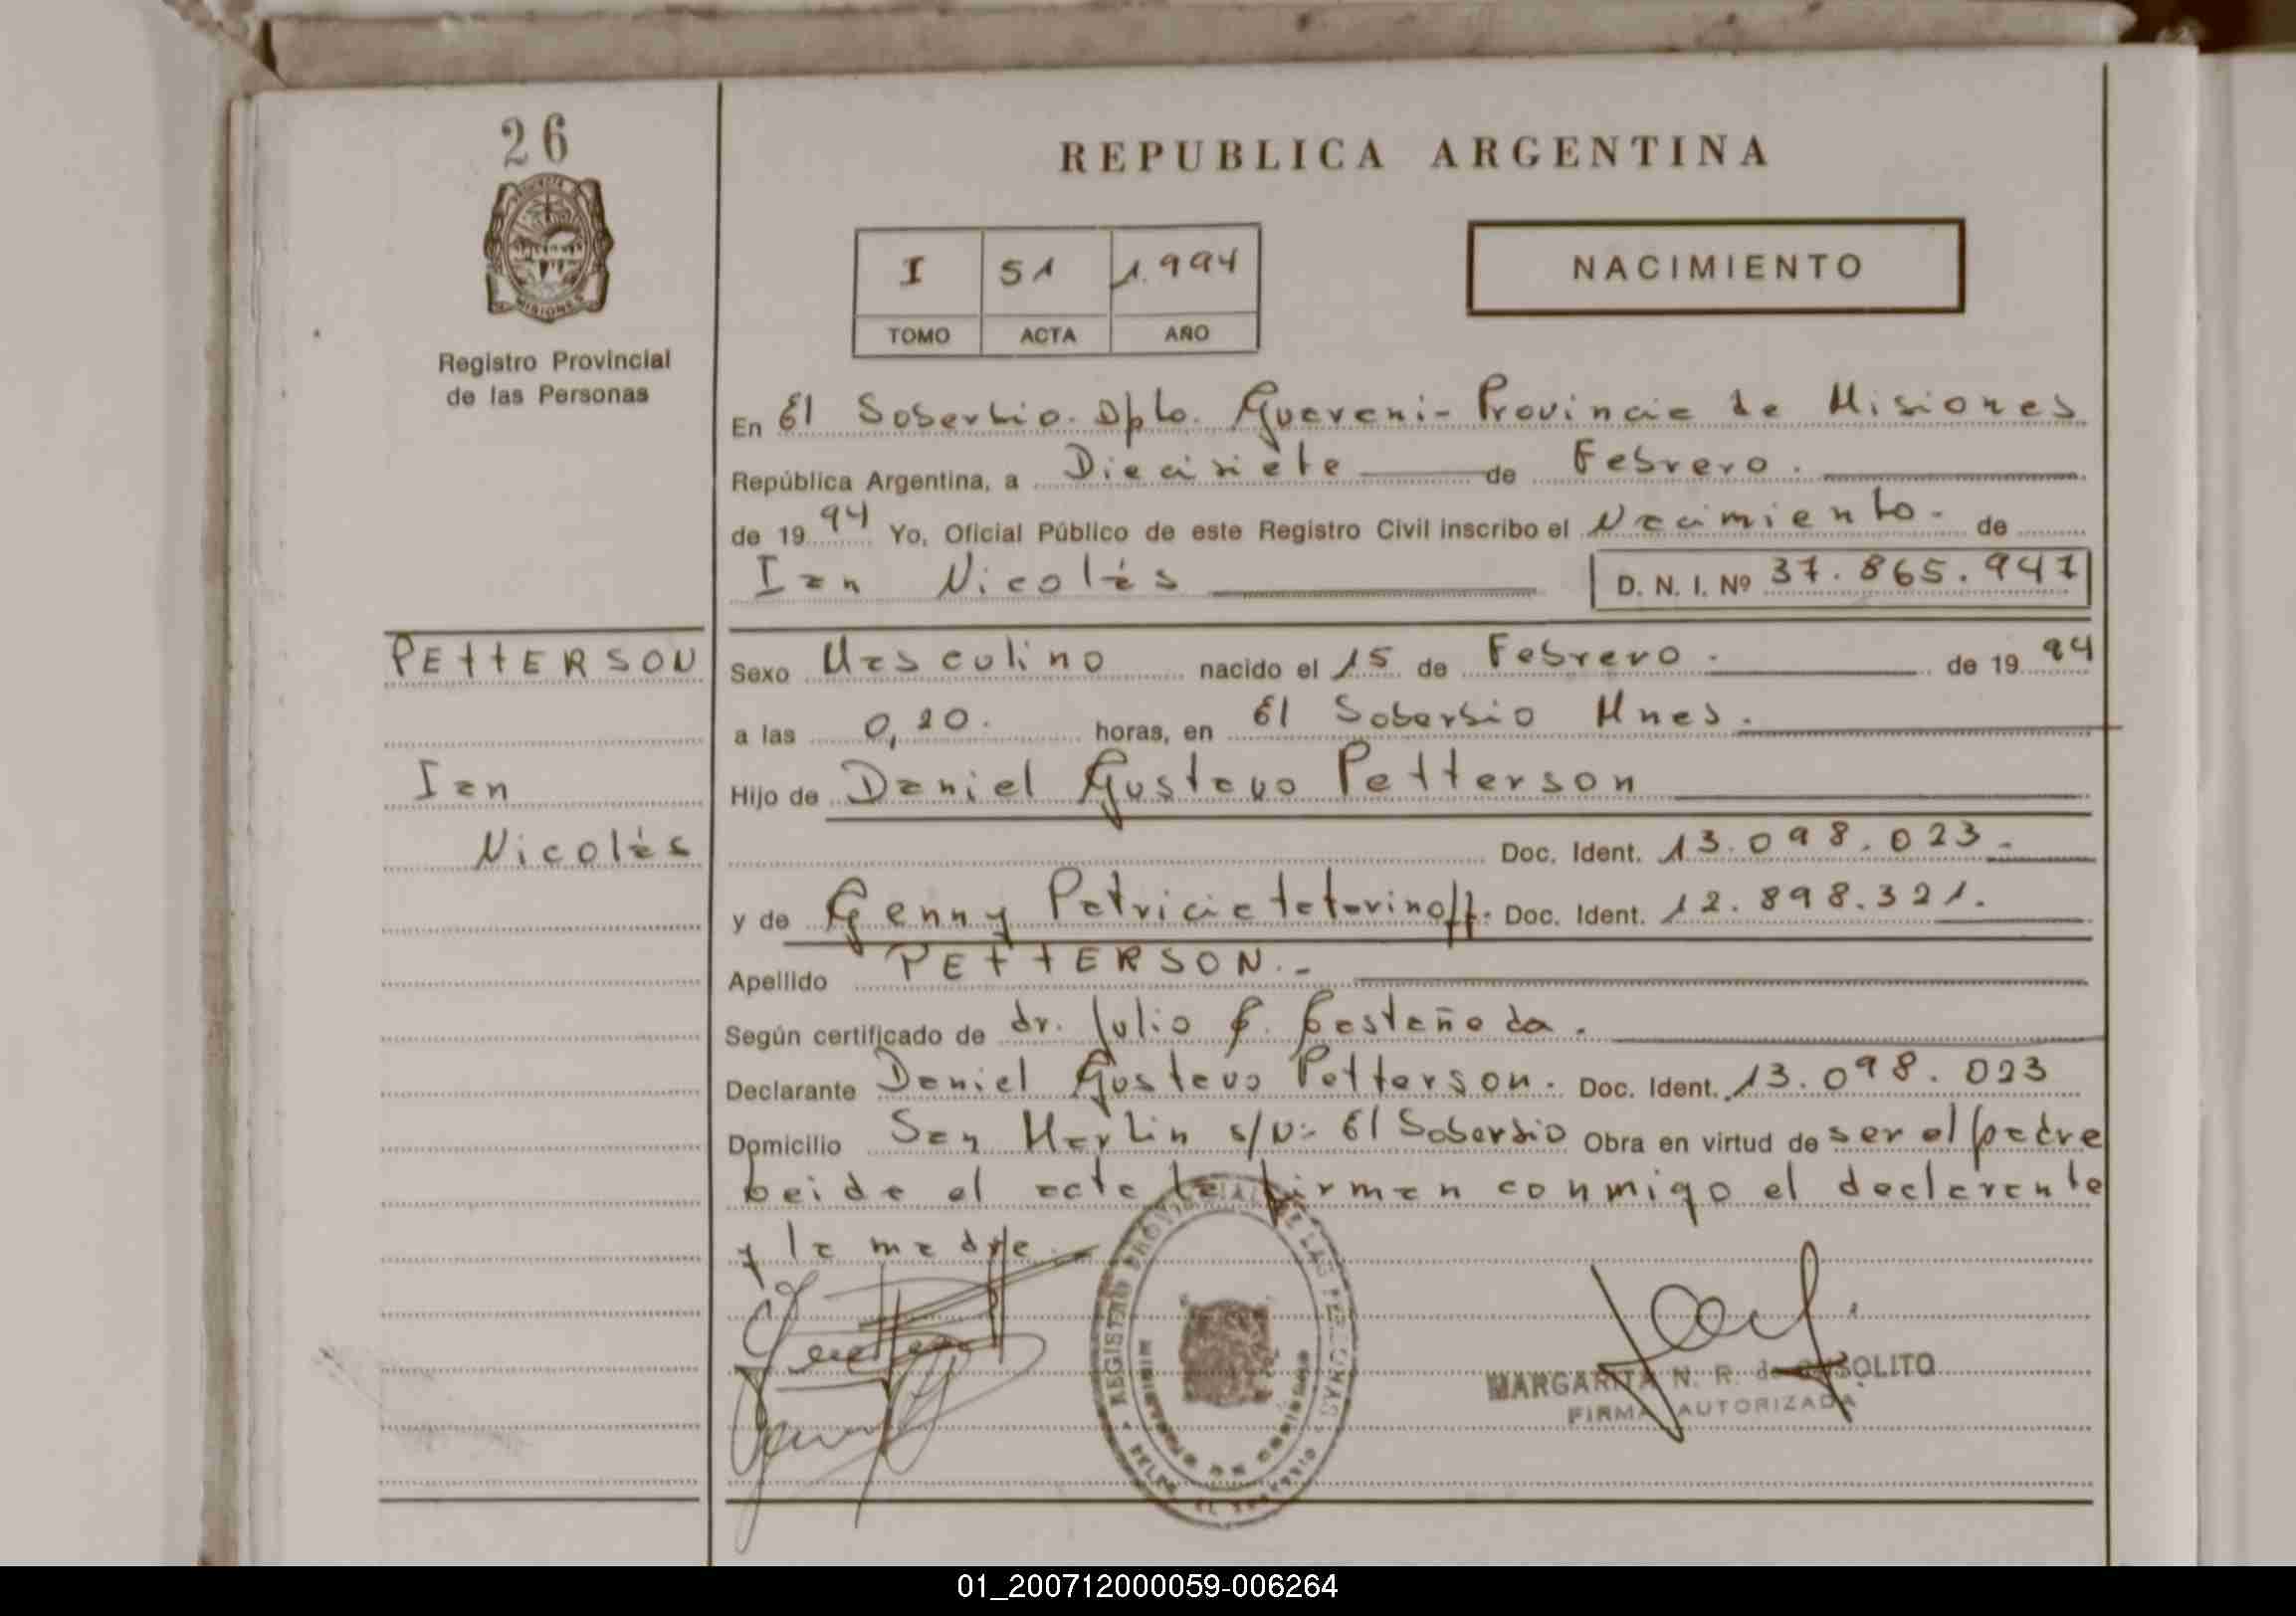 26
REPUBLICA ARGENTINA
I 51 1.994
TOMO ACTA AÑO
NACIMIENTO
MISIONES
Registro Provincial
de las Personas
En El Soberbio. Dpto. Guarani - Provincia de Misiones
República Argentina, a Diecisiete de Febrero.
de 1994 Yo, Oficial Público de este Registro Civil inscribo el Nacimiento - de
Ian Nicolás D. N. I. Nº 37.865.947
PETTERSON
Ian
Nicolás
Sexo Masculino nacido el 15 de Febrero. de 1994
a las 0,20. horas, en El Soberbio Mnes.
Hijo de Daniel Gustavo Petterson
Doc. Ident. 13.098.023.-
y de Genny Patricia Doc. Ident. 12.898.321.
Apellido PETTERSON.-
Según certificado de dr. Julio C. Castañeda.
Declarante Daniel Gustavo Petterson. Doc. Ident. 13.098.023
Domicilio San Martin s/Nº El Soberbio Obra en virtud de ser el padre
Leida el acta la firman conmigo el declarante
y la madre.
REGISTRO PROVINCIAL DE LAS PERSONAS
MARGARITA N. R. de
FIRMA AUTORIZADA
01_200712000059-006264